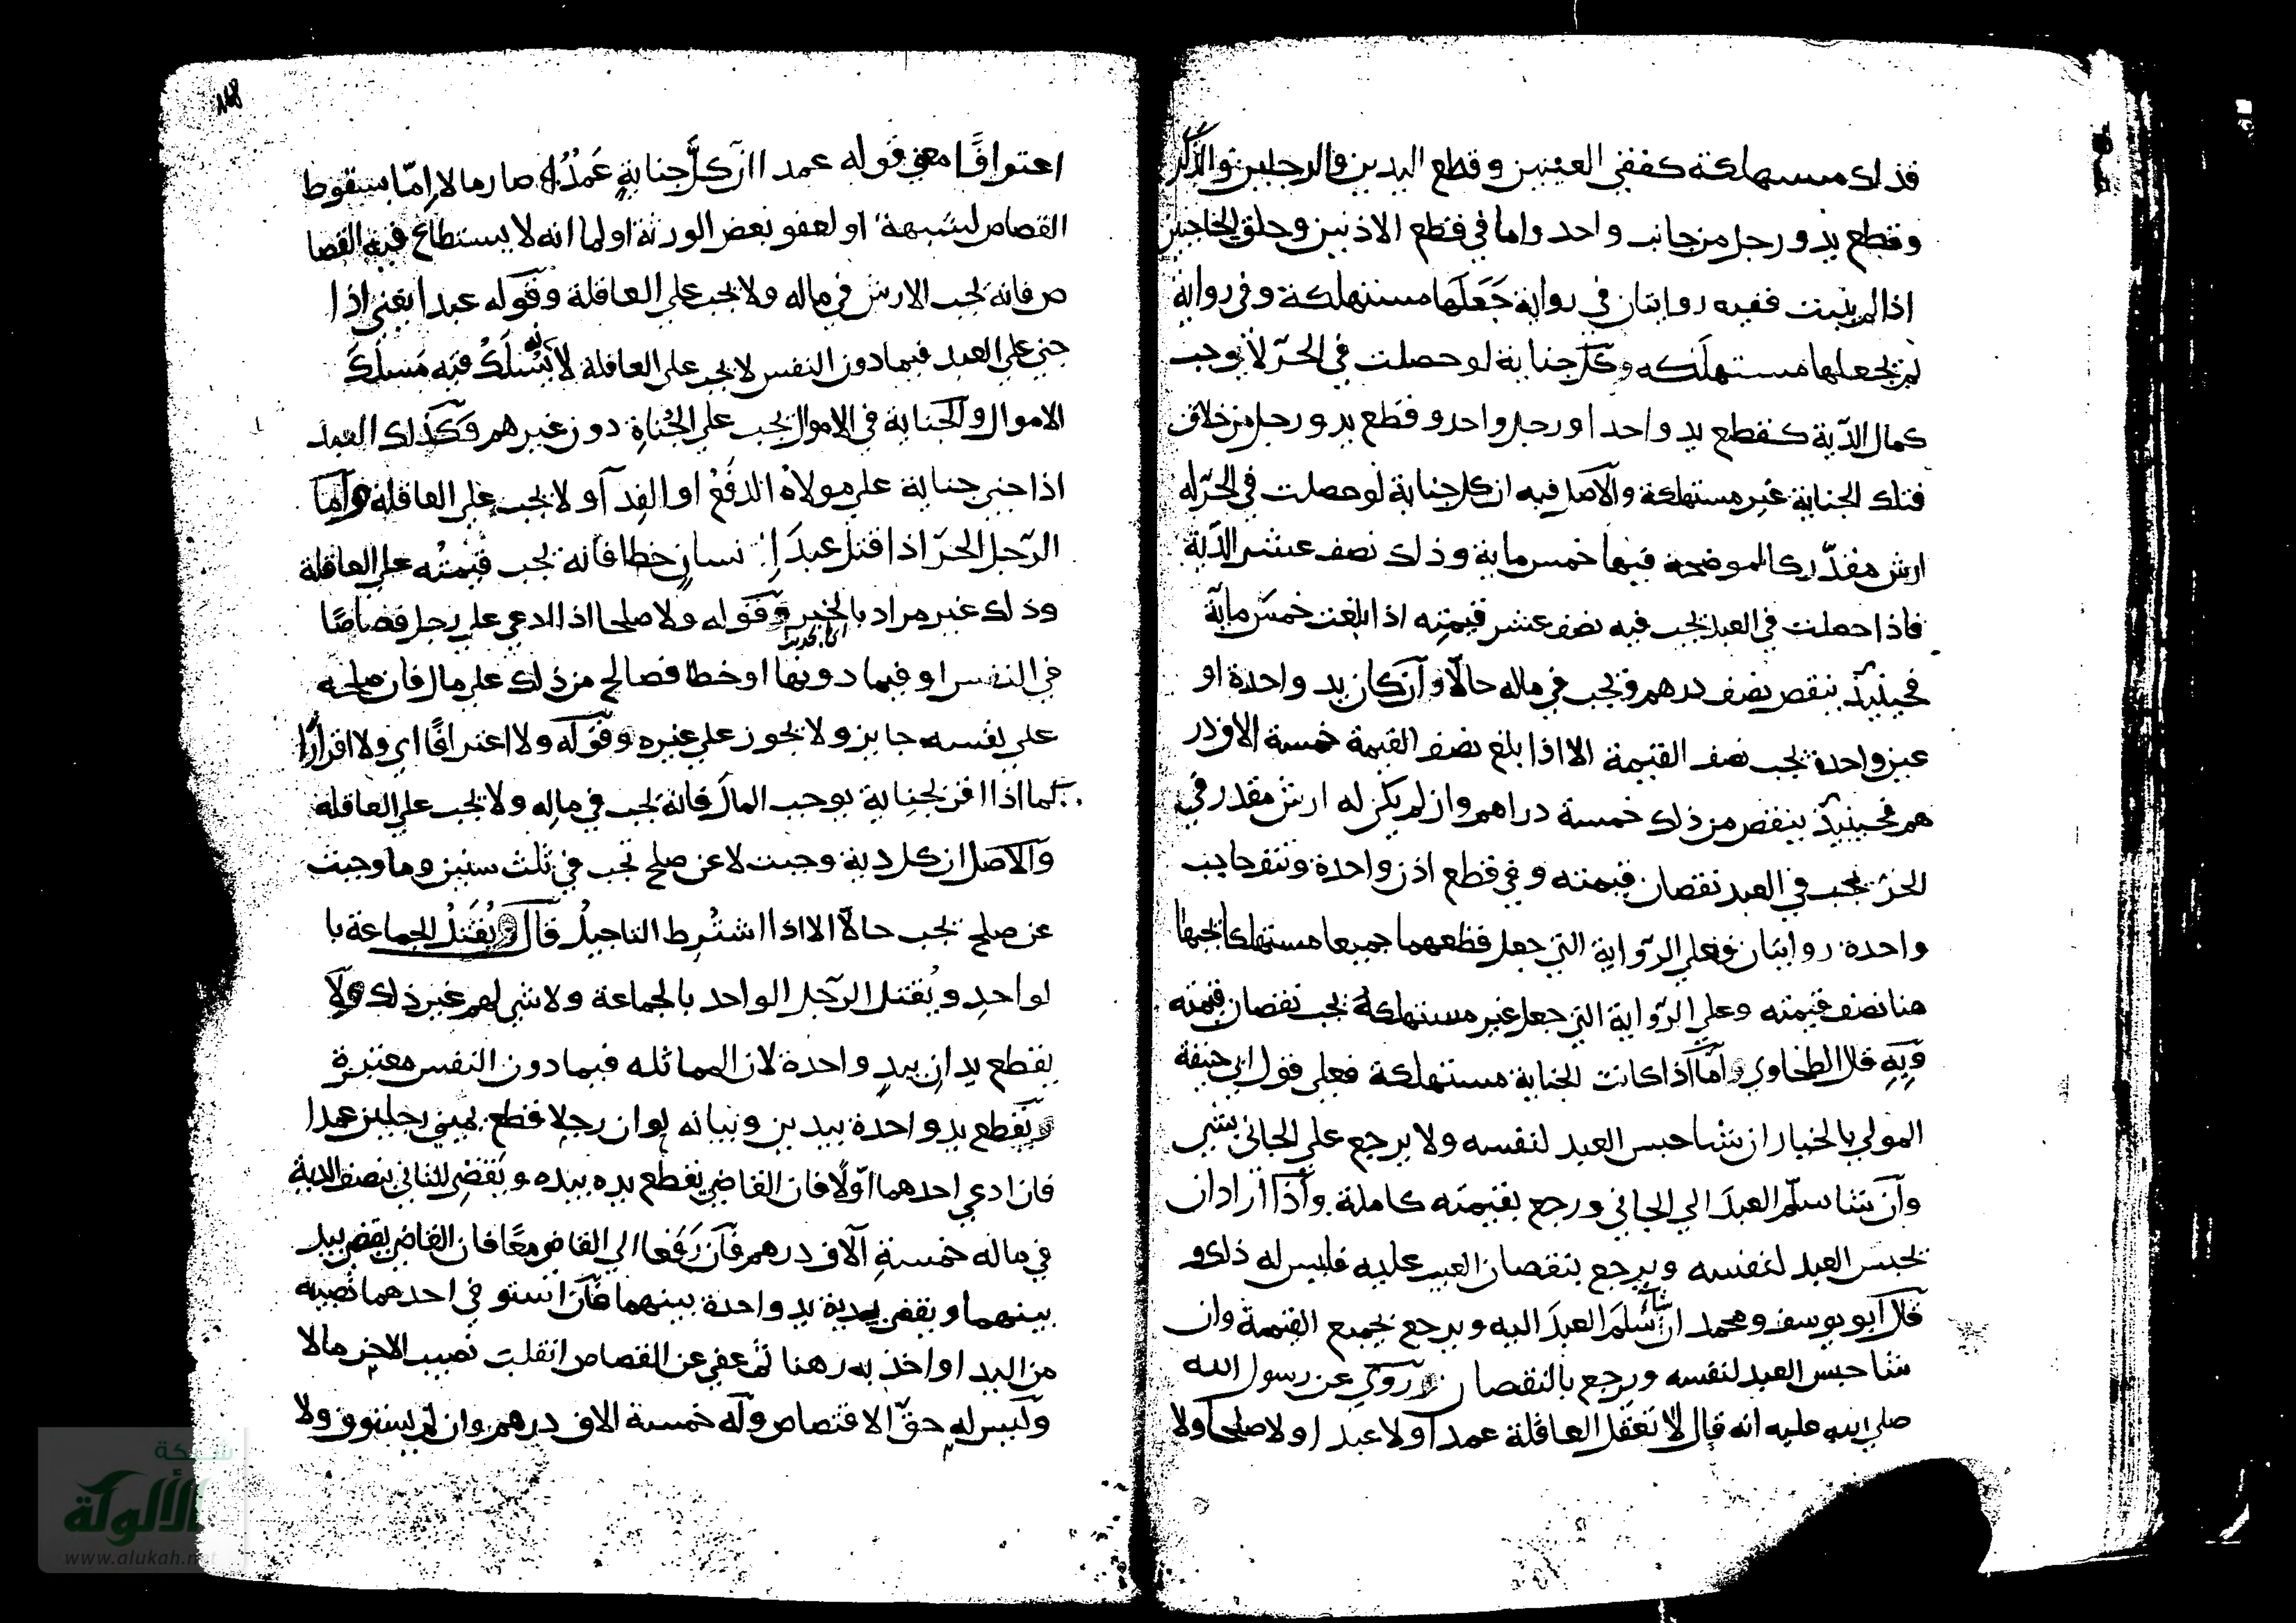 فذلك مستهلكة كفقي العينين وقطع اليدين والرجلين والذكر
وقطع يد ورجل من جانب واحد واما في قطع الاذنين وحلق الحاجبين
اذا لم ينبت ففيه روايتان في رواية جَعَلَها مستهلكة وفي رواية
لم يجعلها مستهلكه وكل جناية لو حصلت في الحرّ لا توجب
كمال الدّية كقطع يد واحد او رجل واحد وقطع يد ورجل من خلاف
فتلك الجناية غير مستهلكة والاصل فيه ان كل جناية لو حصلت في الحرّ له
ارش مقدّر كالموضحه فيها خمس ماية وذلك نصف عشر الدّية
فاذا حصلت في العبد يجب فيه نصف عشر قيمته اذا بلغت خمسَ ماية
فحينيذ ينقص نصف درهم ويجب في ماله حالّا وان كان يد واحدة او
عين واحدة يجب نصف القيمة الا اذا بلغ نصف القيمة خمسة الاف در
هم فحينيذ ينقص من ذلك خمسة دراهم وان لم يكن له ارش مقدر في
الحرّ يجب في العبد نقصان قيمته وفي قطع اذن واحدة ونتف حاجب
واحدة روايتان فعلي الرّواية التي جعل قطعهما جميعا مستهلكا يجب ها
هنا نصف قيمته وعلي الرّواية التي جعل غير مستهلكة يجب نقصان قيمته
وَبِهِ قال الطحاوي وامّا اذا كانت الجناية مستهلكة فعلي قول ابي حنيفة
المولي بالخيار ان شا حبس العبد لنفسه ولا يرجع علي الجاني بشي
وان شا سلّم العبدَ الي الجاني ورجع بقيمته كاملة واذا اراد ان
يحبس العبد لنفسه ويرجع بنقصان العيب عليه فليس له ذلك و
قال ابو يوسف ومحمد ان شا سَلمَ العبدَ اليه ويرجع بجميع القيمة وان
شا حبس العبد لنفسه ورجع بالنقصان رُوي عن رسول الله
صلي الله عليه انه قال لا تعقل العاقلة عمدا ولا عبدا ولا صلحا ولا
١٤٨
اعترافًا معني قوله عمدا ان كلَّ جنايةٍ عَمْدٍ صار مالا اِمّا بسقوط
القصاص لشبهة او لعفو بعض الورثة او لما انه لا يستطاع فيه القصا
ص فانه يجب الارش في ماله ولا يجب علي العاقلة وقوله عبدا يعني اذا
جني علي العبد فيما دون النفس لا يجب علي العاقلة لانه يُسْلَكُ فيه مَسلَكَ
الاموال والجناية في الاموال يجب علي الجُناةِ دون غيرهم وكذلك العبد
اذا جني جناية علي مولاهُ الدفعُ او الفِدآ ولا يجب علي العاقلة واما
الرّجل الحرّ اذا قتل عبدَ اِنسانٍ خطا فانه يجب قيمتُه علي العاقلة
وذلك غير مراد بالخبر وقوله ولا صلحا اذا ادعي علي رجل قصاصًا
في النفس او فيما دونها او خطا فصالح من ذلك علي مال فان صلحه
علي نفسه جايز ولا يجوز علي غيره وقوله ولا اعترافًا اي ولا اقرارًا
كما اذا اقر بجناية يوجب المال فانه يجب في ماله ولا يجب علي العاقلة
والاصل ان كل دية وجبت لا عن صلح تجب في ثلث سنين وما وجبت
عن صلح يجب حالّا الا اذا اشتُرِط التاجيلُ قال ويُقتَلُ الجماعة با
لواحدِ ويُقتل الرّجل الواحد بالجماعة ولا شي لهم غير ذلك ولا
يقطع يدانِ بيدٍ واحدة لان المماثله فيما دون النفس معتبرة
ويقطع يد واحدة بيدين وبيانه لو ان رجلا قطع يميني رجلين عمدا
فان ادعي احدهما اوّلًا فان القاضي يقطع يده بيده ويقضِي للثاني بنصف الدية
في ماله خمسةِ آلاف درهم فان رَفَعا الي القاضي معًا فان القاضي يقضي بيد
بينهما ويقضي بدية يد واحدة بينهما فان استوفي احدهما نصيبه
من اليد او اخذ به رهنا ثم عفي عن القصاص انقلبت نصيب الاخر مالا
وليس له حقّ الاقتصاص وله خمسة الاف درهم وان لم يستوف ولا
شبكة
الألوكة
www.alukah.net